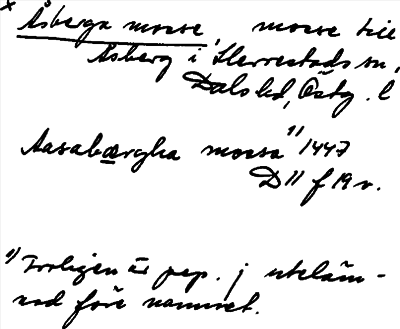 x Åsberga mosse, mosse till
Åsberg i Herrestads sn,
Dals hd, Östg. l
Aasabærgha mossa 1) 1447
D 11 f 19 v.
1) Troligen är pep. j uteläm-
nad före namnet.